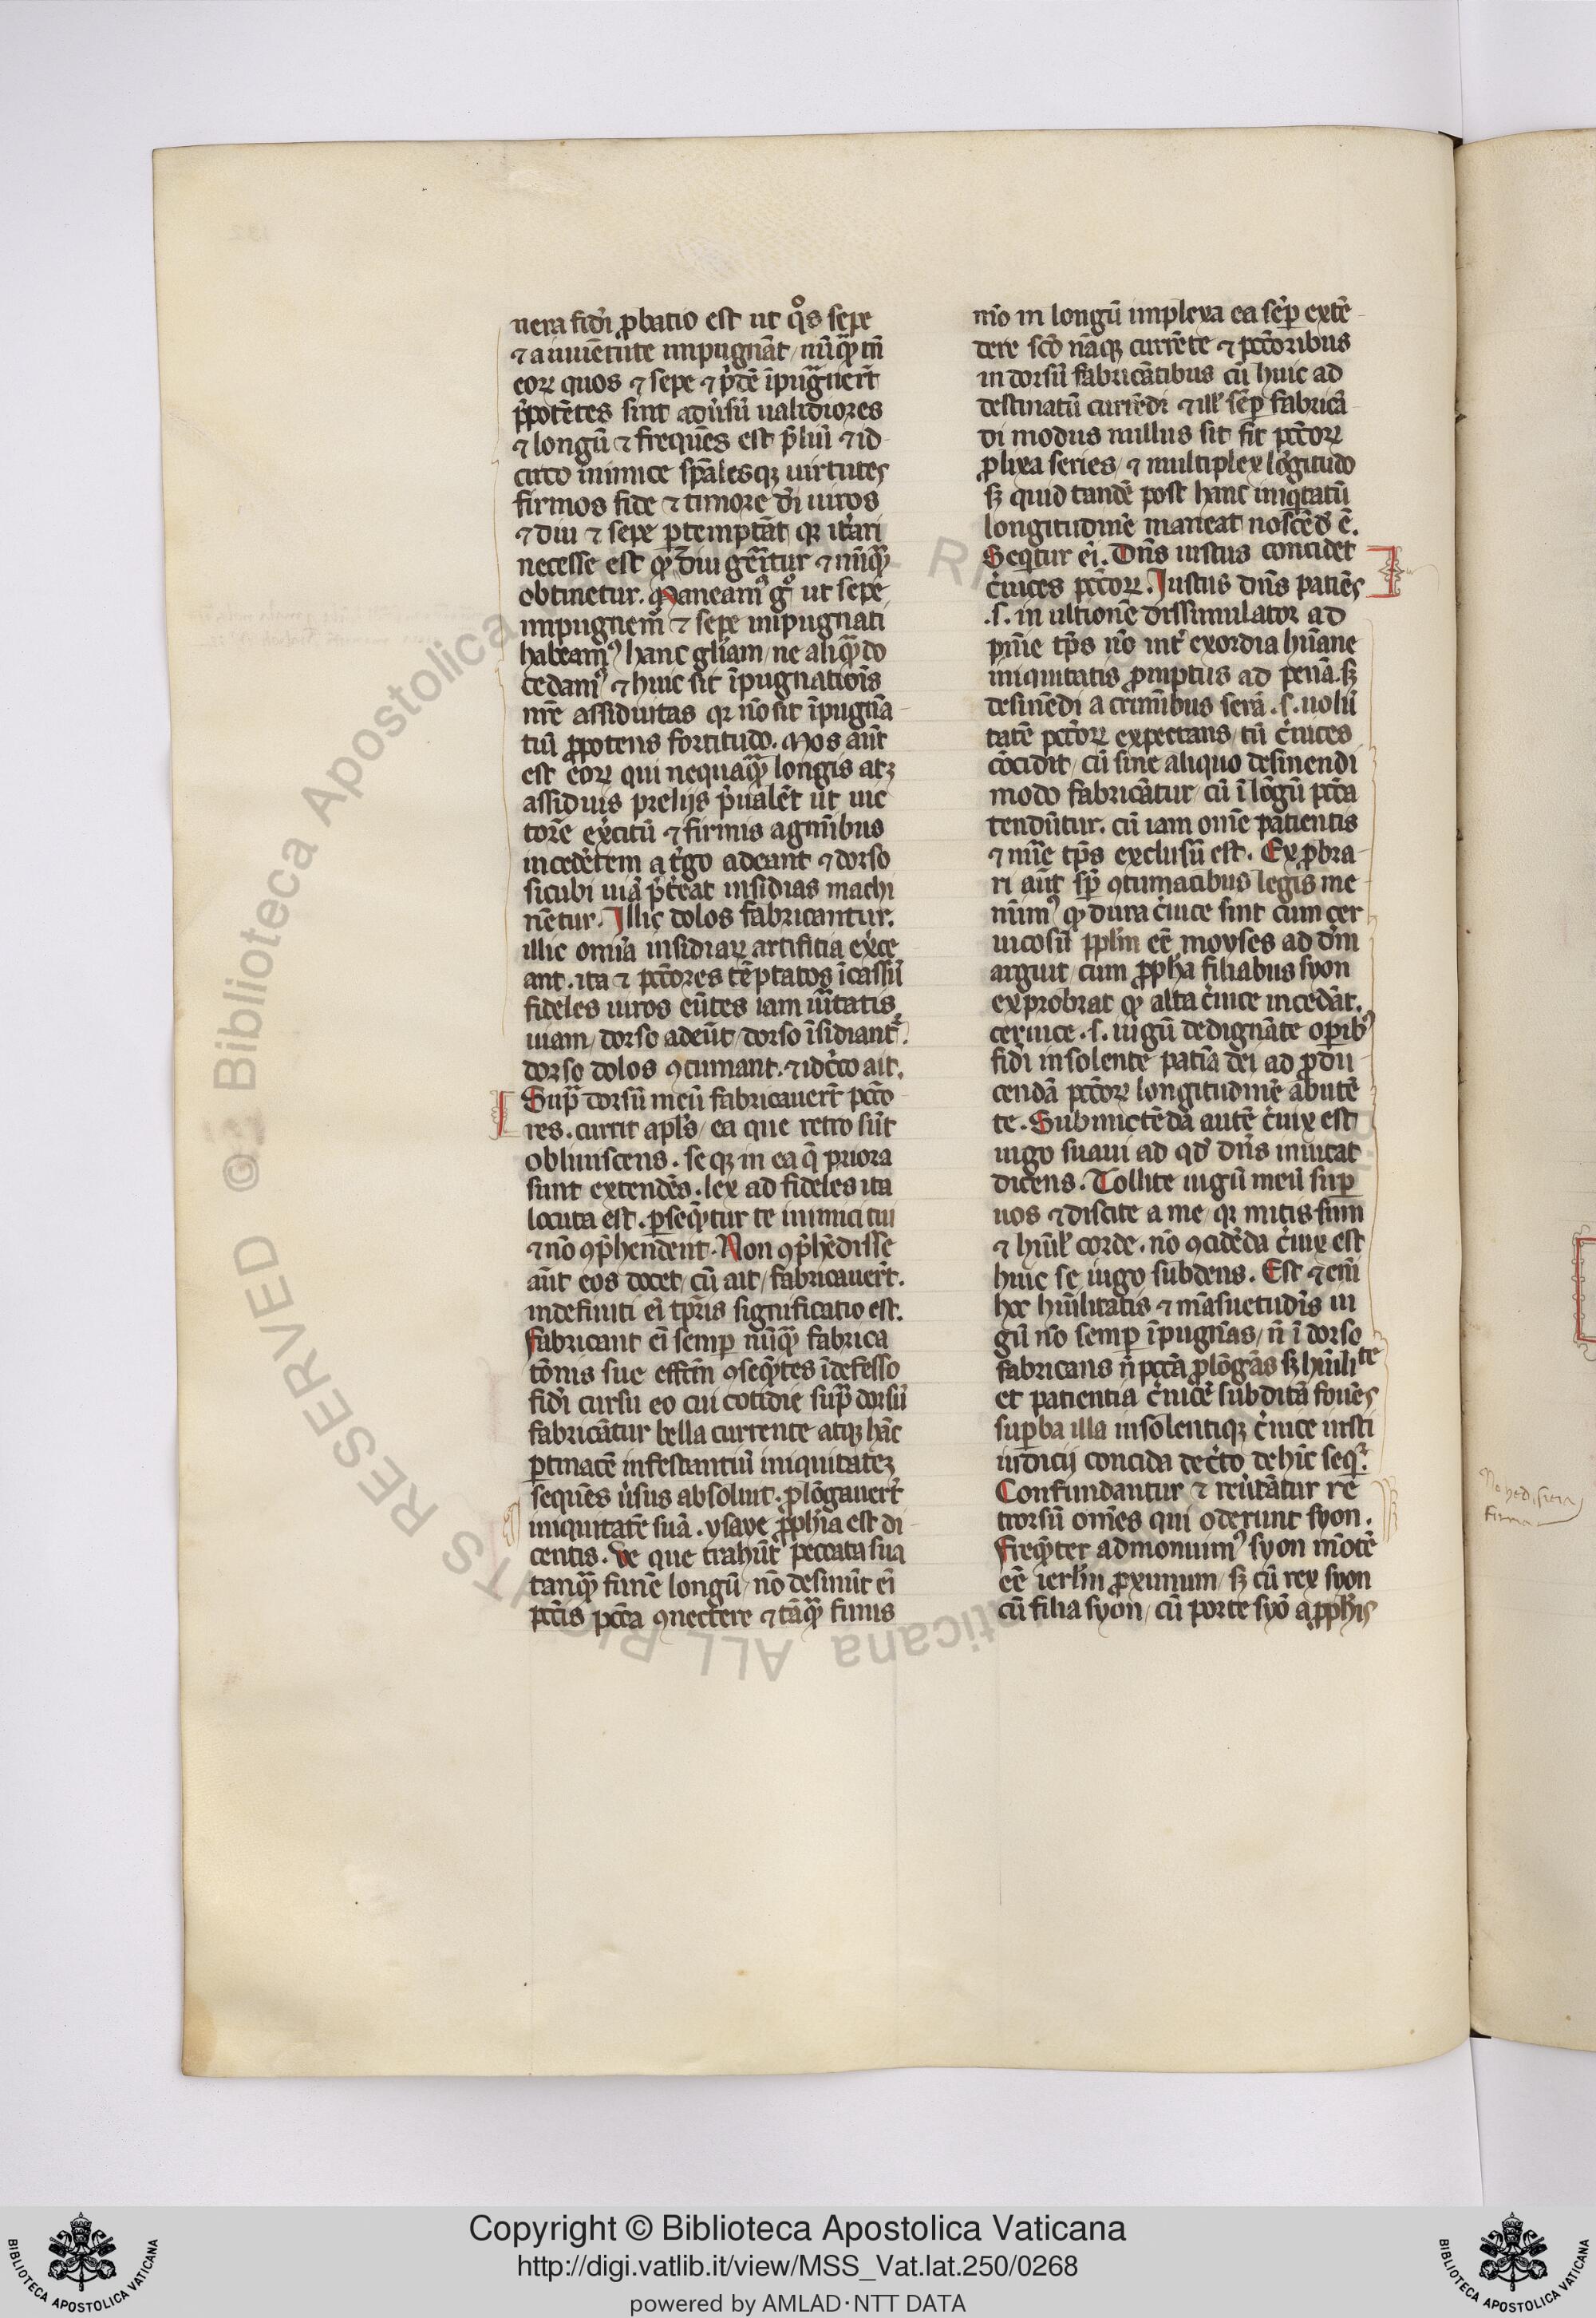 uera fidei ꝓbatio est ut qͦs sepe
⁊ a iuuētute impugnāt / nūqꝫ tn̄
eoꝝ quos ⁊ sepe ⁊ pͥdē īpugͣuer̄t
p̄potētes sint aduͥsū ualidiores
⁊ longū ⁊ frequēs est p̄liū ⁊ id
circo inimice sp̄alesqꝫ uirtutes
firmos fide ⁊ timore dͥi uiros
⁊ diu ⁊ sepe ꝑtemptāt qꝛ iterari
necesse est qꝫ diu gerͥtur ⁊ nūqꝫ
obtinetur. Maneamꝰ gͦ ut sepe
impugnemͬ ⁊ sepe impugnati
habeamꝰ hanc gl̄iam / ne aliqꝫdo
cedamꝰ ⁊ huic sit īpugnatiōis
nr̄e assiduitas qꝛ nō sit īpugnā
tiū p̄potens fortitudo. Mos aūt
est eoꝝ qui nequaqꝫ longis atꝫ
assiduis prelijs p̄ualēt ut uic
torē exercitū ⁊ firmis agmībus
incedētem a tͥgo adeant ⁊ dorso
sicubi uiā p̄tͥeat insidias machi
nētur. Illic dolos fabricantur.
illic omīa insidiaꝝ artifitia exͥce
ant. ita ⁊ pctōres tēptatos īcassū
fideles uiros eūtes iam uͥitatis
uiam / dorso adeūt / dorso īsidiantͬ.
dorso dolos ꝯcumant. ⁊ idcͥco ait.
Supͣ dorsū meū fabricauer̄t pctō
res. currit apl̄s / ea que retro sūt
obliuiscens. se qꝫ in ea q̄ priora
sunt extendēs. lex ad fideles ita
locuta est. ꝑseqūtur te inimici tui
⁊ nō ꝯp̄hendent. Non ꝯp̄hēdisse
aūt eos docet / cū ait / fabricauer̄t.
indefiniti ei̅ tp̄ris significatio est.
Fabricant ei̅ semꝑ nūqꝫ fabrica
tōnis sue effctm̄ ꝯseqūtes īdefesso
fidei cursu eo cui cotidie supͣ dorsū
fabricātur bella currente atqꝫ hāc
ꝑtinacē infestantiū iniquitatēz
sequēs uͥsus absoluit. ꝓlōgauer̄t
iniquitatē suā. ysaye ꝓph̄ia est di
centis. Ve que trahūt peccata sua
tanqꝫ funē longū / nō desinūt ei̅
pctīs pctā ꝯnectere ⁊ tāqꝫ funis
mō in longū implexa ea sēꝑ extē
dere scō nāqꝫ currēte ⁊ pctōribus
in dorsū fabricātibus cū huic ad
destinatū currēdi ⁊ ill̄ sēꝑ fabricā
di modus nullus sit fit pctōꝝ
ꝓlixa series / ⁊ multiplex lōgitudo
sꝫ quid tandē post hanc iniqͥtatū
longitudinē maneat noscēdͫ ē.
Seqͥtur ei̅. Dn̄s iustus concidet
cͥuices pctōꝝ. Iustus dn̄s patiēs
.s. in ultionē dissimulator ad
pnīe tp̄s nō intͥ exordia hūane
iniquitatis ꝓmptus ad penā. sꝫ
desinēdi a crimībus serā .s. uolū
tatē pctōꝝ expectans / tū cͥuices
cōcidit / cū sine aliquo desinendi
modo fabricātur / cū ī lōgū pctā
tendūtur. cū iam om̄e patientis
⁊ mīe tp̄s exclusū est. Exꝓbra
ri aūt sꝑ ꝯtumacibus legis me
nimꝰ qꝫ dura cͥuice sint cum cer
uicosū ppl̄m eē moyses ad dm̄
arguit / cum ꝓph̄a filiabus syon
exprobrat qꝫ alta cͥuice incedāt.
ceruice .s. iugū dedignāte opibꝰ
fidei insolente patiā dei ad ꝓdu
cendā pctōꝝ longitudinē abutē
te. Submictēda autē cͥuix est
iugo suaui ad qdͫ dn̄s inuitat
dicens. Tollite iugū meū suꝑ
uos ⁊ discite a me / qꝛ mitis sum
⁊ hūil̄ corde. nō ꝯcidēda cͥuix est
huic se iugo subdens. Est ⁊em̄
hec hūilitatis ⁊ māsuetudīs iu
gū nō semꝑ īpugnās / n̄ ī dorso
fabricans n̄ pctā ꝓlōgās sꝫ hūilite
et patientia cͥuicē subditā fouēs
suꝑba illa insolentiqꝫ cͥuice iusti
iudicij concida decͥto dehīc seqͬ.
Confundantur ⁊ reuͥtātur re
trorsū om̄es qui oderunt syon.
Freqͤter admonuimꝰ syon mōtē
eē ierl̄m ꝓximum / sꝫ cū rex syon
cū filia syon / cū porte syō a ꝓph̄is
Copyright © Biblioteca Apostolica Vaticana
http://digi.vatlib.it/view/MSS_Vat.lat.250/0268
powered by AMLAD·NTT DATA